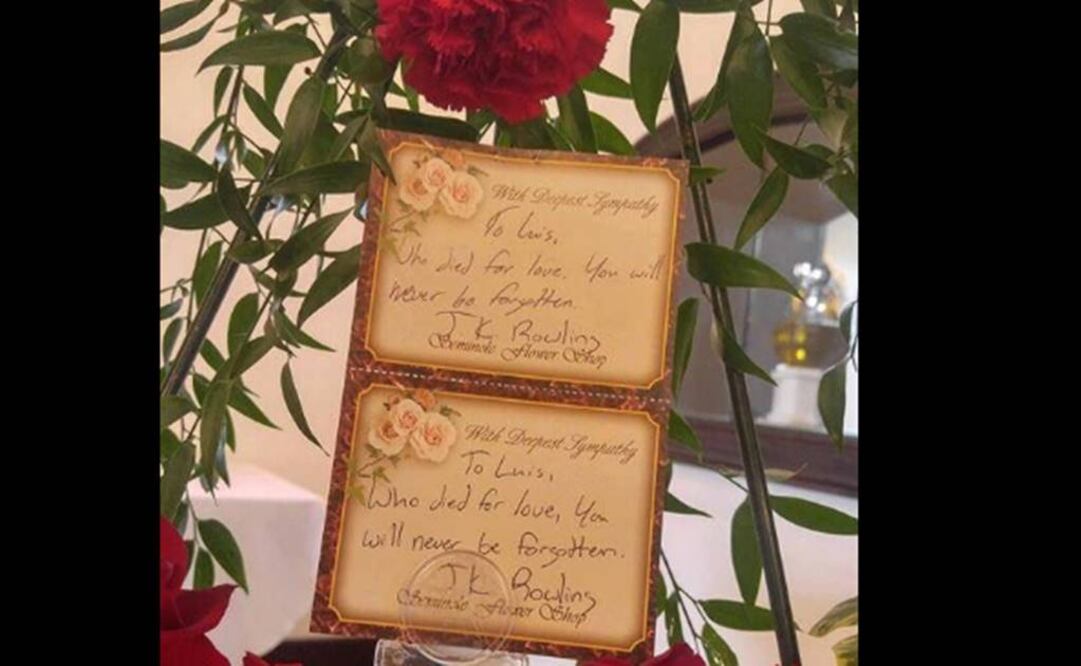 With Deepest Sympathy
To Luis,
Who died for love. You will
never be forgotten.
J K Rowling
Seminole Flower Shop
With Deepest Sympathy
To Luis,
Who died for love, You
will never be forgotten.
J K Rowling
Seminole Flower Shop